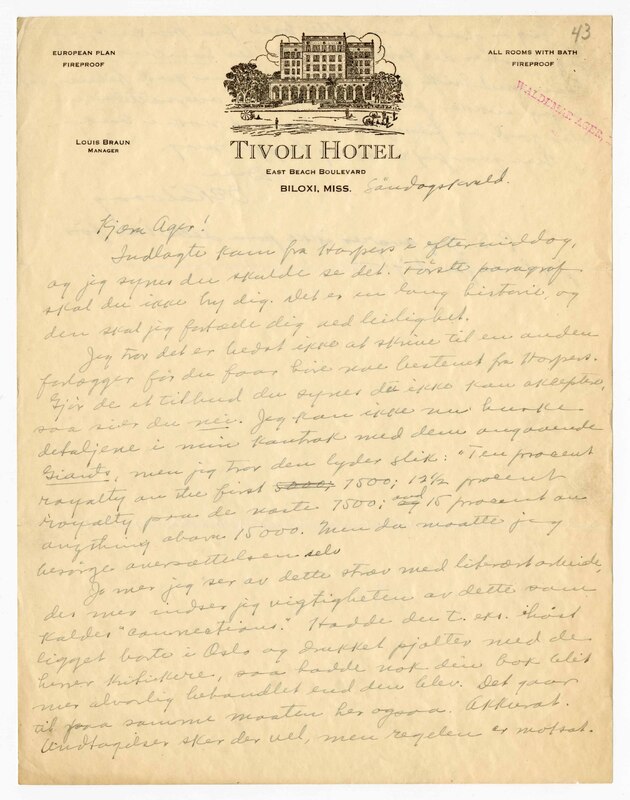 43
EUROPEAN PLAN
FIREPROOF
ALL ROOMS WITH BATH
FIREPROOF
WALDEMAR AGER,
LOUIS BRAUN
MANAGER
TIVOLI HOTEL
EAST BEACH BOULEVARD
BILOXI, MISS.
Söndagskveld.
Kjære Ager!
Indlagte kom fra Harpers i eftermiddag,
og jeg synes du skulde se det. Förste paragraf
skal du ikke bry dig. Det er en lang historie, og
den skal jeg fortælle dig ved leilighet.
Jeg tror det er bedst ikke at skrive til en anden
forlægger för du faar höre noe bestemt fra Harpers.
Gjör de et tilbud du synes du ikke kan akceptere,
saa sier du nei. Jeg kan ikke nu huske
detaljene i min kontrakt med dem angaaende
Giants, men jeg tror den lyder slik: "Ten procent
royalty on the first 7500; 12½ procent
royalty paa de næste 7500; and 15 procent on
anything above 15000. Men da maatte jeg
besörge oversættelsen selv
Jo mer jeg ser av dette stræv med literært arbeide,
des mer indser jeg vigtigheten av dette som
kaldes "connections." Hadde du t. eks. ihöst
ligget borte i Oslo og drukket pjolter med de
herrer kritikere, saa hadde nok din bok blit
mer alvorlig behandlet end den blev. Det gaar
til paa samme maaten her ogsaa. Akkurat.
Undtagelser sker der vel, men regelen er motsat.